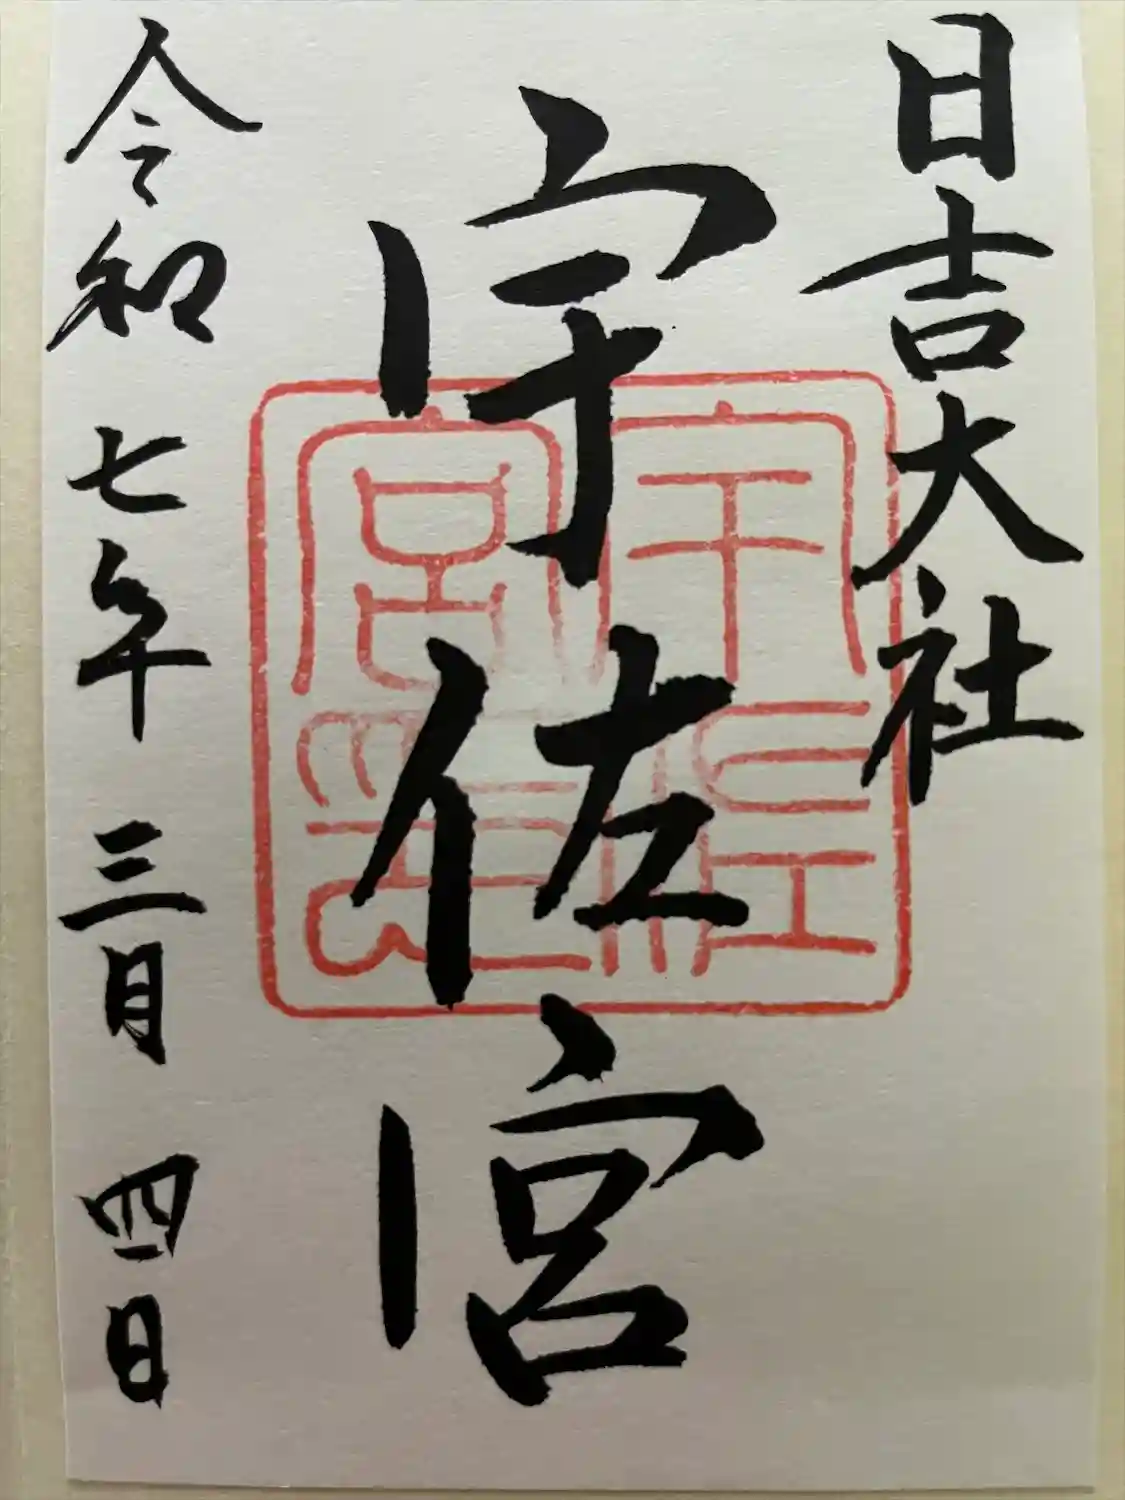 日吉大社
宇佐宮
令和七年三月四日